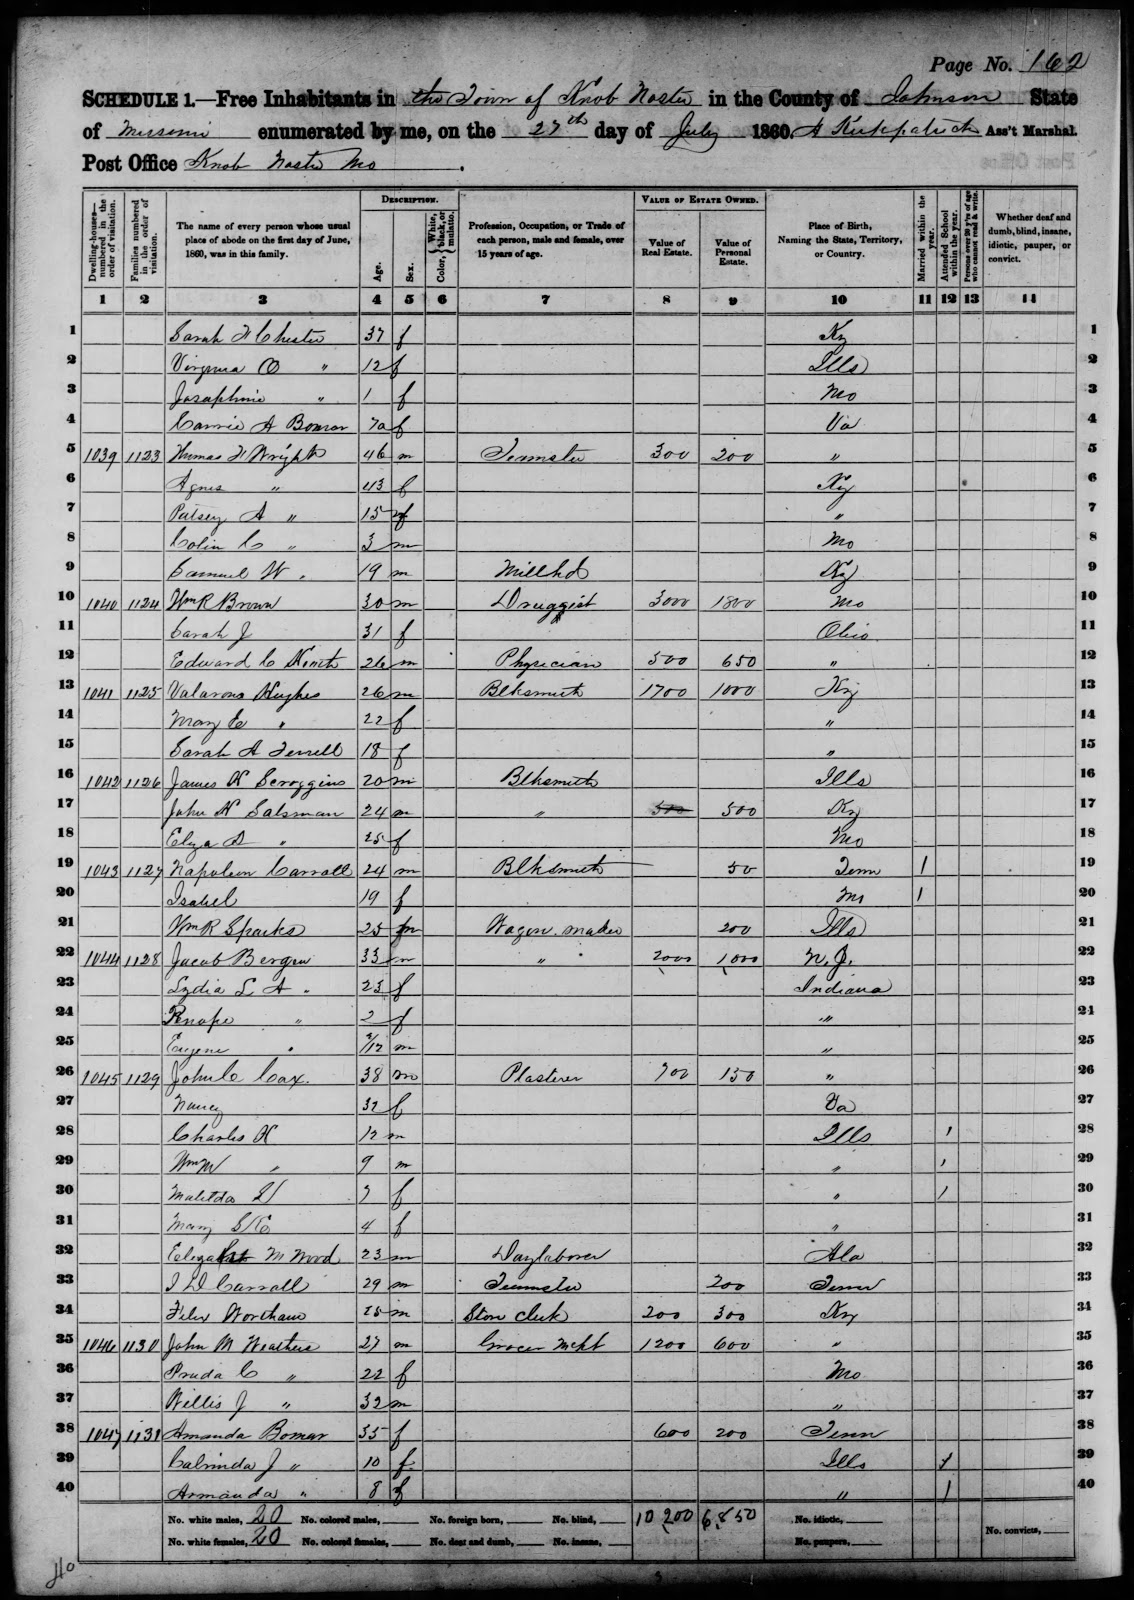 Page No. 162
SCHEDULE 1.—Free Inhabitants in the Town of Knob Noster in the County of Johnson State
of Missouri enumerated by me, on the 27th day of July 1860. A Kirkpatrick Ass't Marshal.
Post Office Knob Noster Mo.
Dwelling-houses—numbered in the order of visitation.
Families numbered in the order of visitation.
The name of every person whose usual place of abode on the first day of June, 1860, was in this family.
DESCRIPTION.
Age.
Sex.
Color, White, black, or mulatto.
Profession, Occupation, or Trade of each person, male and female, over 15 years of age.
VALUE OF ESTATE OWNED.
Value of Real Estate.
Value of Personal Estate.
Place of Birth, Naming the State, Territory, or Country.
Married within the year.
Attended School within the year.
Persons over 20 y'rs of age who cannot read & write.
Whether deaf and dumb, blind, insane, idiotic, pauper, or convict.
1 2 3 4 5 6 7 8 9 10 11 12 13 14
1 Sarah H Chester 37 f Ky 1
2 Virginia O " 12 f Ills 2
3 Josephine " 1 f Mo 3
4 Carrie A Bomar 70 f Va 4
5 1039 1123 Thomas H Wright 46 m Teamster 300 200 " 5
6 Agnes " 43 f Ky 6
7 Patsey A " 15 f " 7
8 Colin C " 3 m Mo 8
9 Samuel W " 19 m Mill hd Ky 9
10 1040 1124 Wm R Brown 30 m Druggist 3000 1800 Mo 10
11 Sarah J 31 f Ohio 11
12 Edward C 26 m Physician 500 650 " 12
13 1041 1125 Valarous Hughes 26 m Blksmith 1700 1000 Ky 13
14 Mary E " 22 f " 14
15 Sarah A Terrell 18 f " 15
16 1042 1126 James H Scroggins 20 m Blksmith Ills 16
17 John N Salsman 24 m " 500 500 Ky 17
18 Eliza A " 25 f Mo 18
19 1043 1127 Napoleon Carroll 24 m Blksmith 50 Tenn 1 19
20 Isabel 19 f Mo 1 20
21 Wm R Sparks 25 m Wagon maker 200 Ills 21
22 1044 1128 Jacob Bergen 33 m " " 2000 1000 N.J. 22
23 Lydia L A " 23 f Indiana 23
24 " 2 f " 24
25 Eugene " /12 m " 25
26 1045 1129 John C Cox. 38 m Plasterer 700 150 " 26
27 Nancy 32 f Va 27
28 Charles H 12 m Ills 1 28
29 Wm W " 9 m " 1 29
30 Matilda 7 f " 1 30
31 Mary 4 f " 31
32 M Wood 23 m Daylaborer Ala 32
33 Carroll 29 m Teamster 200 Tenn 33
34 Felix Wortham 25 m Store Clerk 200 300 Ky 34
35 1046 1130 John M Weathers 27 m Grocer Mcht 1200 600 " 35
36 Pruda C " 22 f Mo 36
37 Willis J " 32 m " 37
38 1047 1131 Amanda Bomar 35 f 600 200 Tenn 38
39 Calrinda J " 10 f Ills 1 39
40 Armanda " 8 f " 1 40
No. white males, 20 No. colored males, No. foreign born, No. blind, 10,200 6,850 No. idiotic,
No. white females, 20 No. colored females, No. deaf and dumb, No. insane, No. paupers, No. convicts,
40